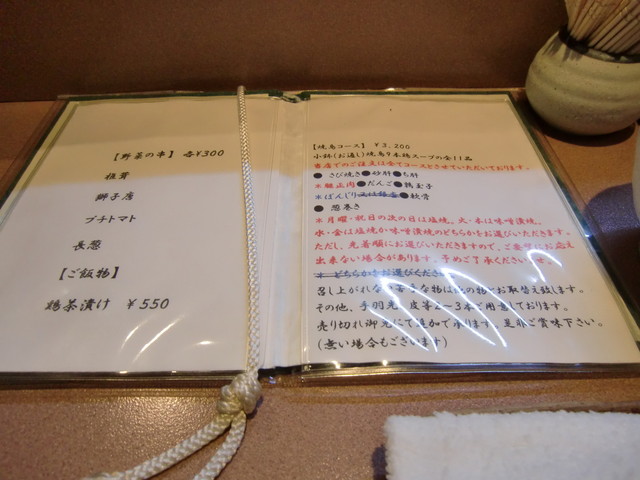 【野菜の串】 各¥300
椎茸
獅子唐
プチトマト
長葱
【ご飯物】
鶏茶漬け ¥550
【焼鳥コース】 ¥3,200
小鉢(お通し)焼鳥9本鶏スープの全11品
当店でのご注文は全てコースとさせていただいております。
●さび焼き●砂肝●ち肝
＊ ●だんご●鶏玉子
＊ぼんじり又は銀杏●軟骨
●葱巻き
＊月曜・祝日の次の日は塩焼、火・木は味噌漬焼、
水・金は塩焼か味噌漬焼のどちらかをお選びいただきます。
ただし、先着順にお選びいただきますので、ご要望にお応え
出来ない場合があります。予めご了承くださいませ。
＊ どちらかをお選びください
召し上がれない苦手な物は他の物とお取替え致します。
その他、手羽先、皮等2～3本ご用意しております。
売り切れ御免にて追加で承ります。是非ご賞味下さい。
(無い場合もございます)